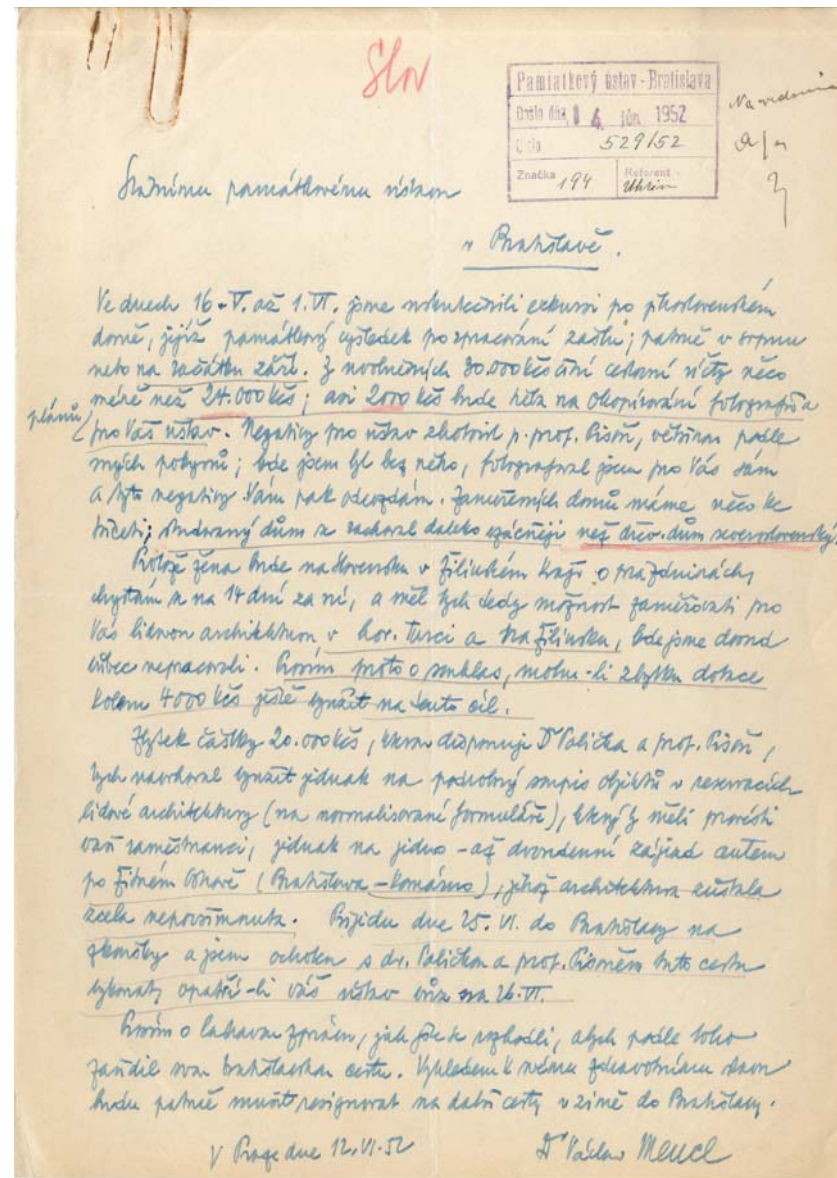 Slov
Pamiatkový ústav - Bratislava
Došlo dňa 14 jún 1952
Číslo 529/52
Značka 194 Referent Uhrin
Na vedomie
Státnímu památkovému ústavu
v Bratislavě.
Ve dnech 16.V. až 1.VI. jsme uskutečnili exkursi po slovenském
domě, jejíž památkový výsledek po zpracování zašlu; patrně v srpnu
nebo na začátku září. Z uvolněných 30.000 Kčs činí cestovní účty něco
méně než 24.000 Kčs; asi 2000 Kčs bude třeba na okopírování fotografií a
plánů pro Váš ústav. Negativy pro ústav zhotovil p. prof. Pisoň, většinou podle
mých pokynů; kde jsem byl bez něho, fotografoval jsem pro Vás sám
a tyto negativy Vám pak odevzdám. Zaměřených domů máme něco ke
třiceti; dům se zachoval daleko vzácněji než dřev. dům severoslovenský.
Protože žena bude na Slovensku v Žilinském kraji o prázdninách,
chystám se na 14 dní za ní, a měl bych tedy možnost zaměřovati pro
Vás lidovou architekturu v hor. Turci a na Žilinsku, kde jsme dosud
vůbec nepracovali. Prosím proto o souhlas, mohu-li zbytku dotace
kolem 4000 Kčs ještě využít na tento cíl.
Zbytek částky 20.000 Kčs, kterou disponuje Dr Polička a prof. Pisoň,
bych navrhoval využít jednak na podrobný soupis objektů v reservacích
lidové architektury (na normalisované formuláře), který by měli provésti
vaši zaměstnanci, jednak na jedno - až dvoudenní zájezd autem
po Žitném Ostrově (Bratislava - Komárno), jehož architektura zůstala
zcela nepovšimnuta. Přijedu dne 25. VI. do Bratislavy na
zkoušky a jsem ochoten s dr. Poličkou a prof. Pisoněm tuto cestu
vykonati, opatří-li váš ústav vůz na 26.VI.
Prosím o laskavou zprávu, jak jste se rozhodli, abych podle toho
zařídil svou bratislavskou cestu. Vzhledem k mému zdravotnímu stavu
budu patrně muset resignovat na další cesty v zimě do Bratislavy.
V Praze dne 12.VI.52 Dr Václav Mencl